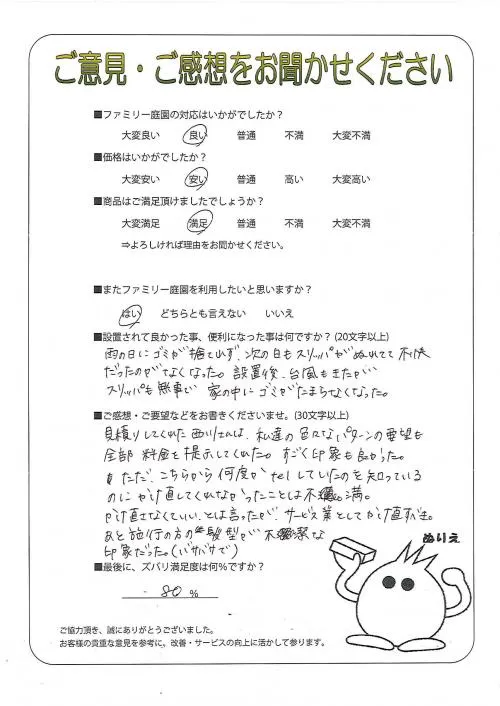 ご意見・ご感想をお聞かせください
■ファミリー庭園の対応はいかがでしたか？
大変良い 良い 普通 不満 大変不満
■価格はいかがでしたか？
大変安い 安い 普通 高い 大変高い
■商品はご満足頂けましたでしょうか？
大変満足 満足 普通 不満 大変不満
⇒よろしければ理由をお聞かせください。
■またファミリー庭園を利用したいと思いますか？
はい どちらとも言えない いいえ
■設置されて良かった事、便利になった事は何ですか？(20文字以上)
雨の日にゴミが捨てれず、次の日もスリッパがぬれてて不快
だったのがなくなった。設置後、台風もきたが
スリッパも無事で 家の中にゴミがたまらなくなった。
■ご感想・ご要望などをお書きくださいませ。(30文字以上)
見積りしてくれた西川さんは、私達の色々なパターンの要望も
全部 料金を提示してくれた。すごく印象も良かった。
ただ、こちらから何度か telしていたのを知っている
のにかけ直してくれなかったことは不満。
かけ直さなくていい、とは言ったが、サービス業としてかけ直すべき。
あと施行の方の髪型が不潔な
印象だった。(バサバサで)
■最後に、ズバリ満足度は何%ですか？
80 %
ぬりえ
ご協力頂き、誠にありがとうございました。
お客様の貴重な意見を参考に、改善・サービスの向上に活かして参ります。